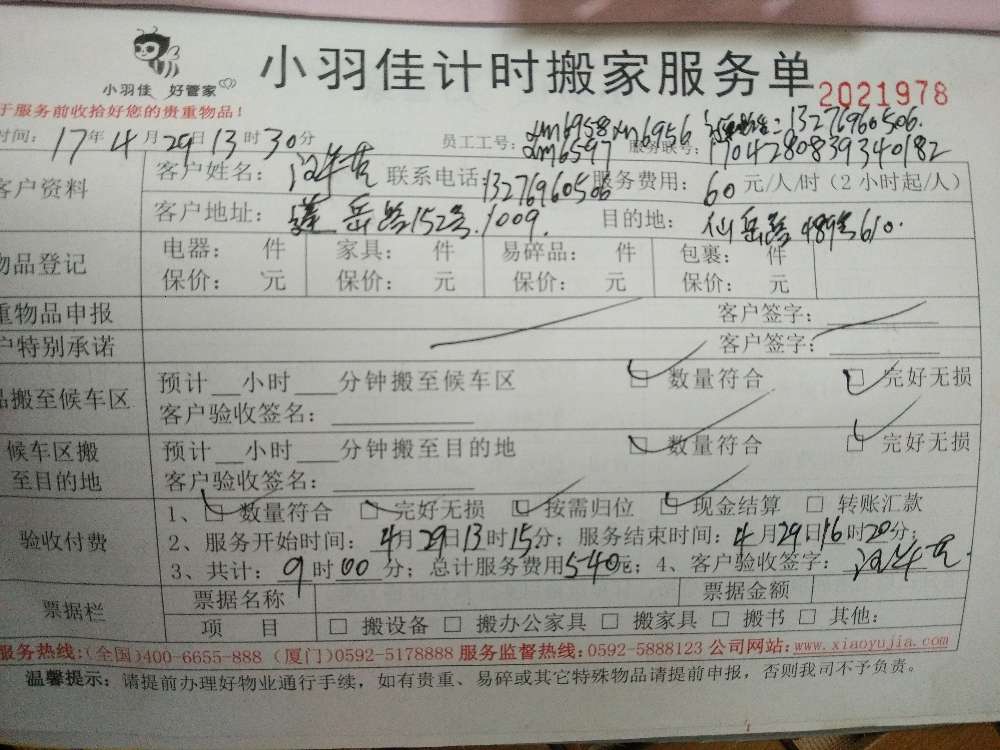 小羽佳 好管家
小羽佳计时搬家服务单
2021978
于服务前收拾好您的贵重物品！
时间：17年4月29日13时30分
员工工号：xm6958 xm6956 13276960506.
xm6597 服务联号：1704280839340182
客户资料 客户姓名： 联系电话：13276960506 服务费用：60元/人/时（2小时起/人）
客户地址：莲岳路152号1009. 目的地：仙岳路489号610.
物品登记 电器： 件 家具： 件 易碎品： 件 包裹： 件
保价： 元 保价： 元 保价： 元 保价： 元
重物品申报 客户签字：
户特别承诺 客户签字：
品搬至候车区 预计__小时___分钟搬至候车区 □ 数量符合 □ 完好无损
客户验收签名：
候车区搬至目的地 预计__小时___分钟搬至目的地 □ 数量符合 □ 完好无损
客户验收签名：
验收付费 1、□ 数量符合 □ 完好无损 □ 按需归位 □ 现金结算 □ 转账汇款
2、服务开始时间：4月29日13时15分；服务结束时间：4月29日16时20分；
3、共计：9时00分；总计服务费用540元；4、客户验收签字：
票据栏 票据名称 票据金额
项 目 □ 搬设备 □ 搬办公家具 □ 搬家具 □ 搬书 □ 其他：
服务热线：(全国)400-6655-888（厦门)0592-5178888 服务监督热线：0592-5888123 公司网站：www.xiaoyujia.com
温馨提示：请提前办理好物业通行手续，如有贵重、易碎或其它特殊物品请提前申报，否则我司不予负责。